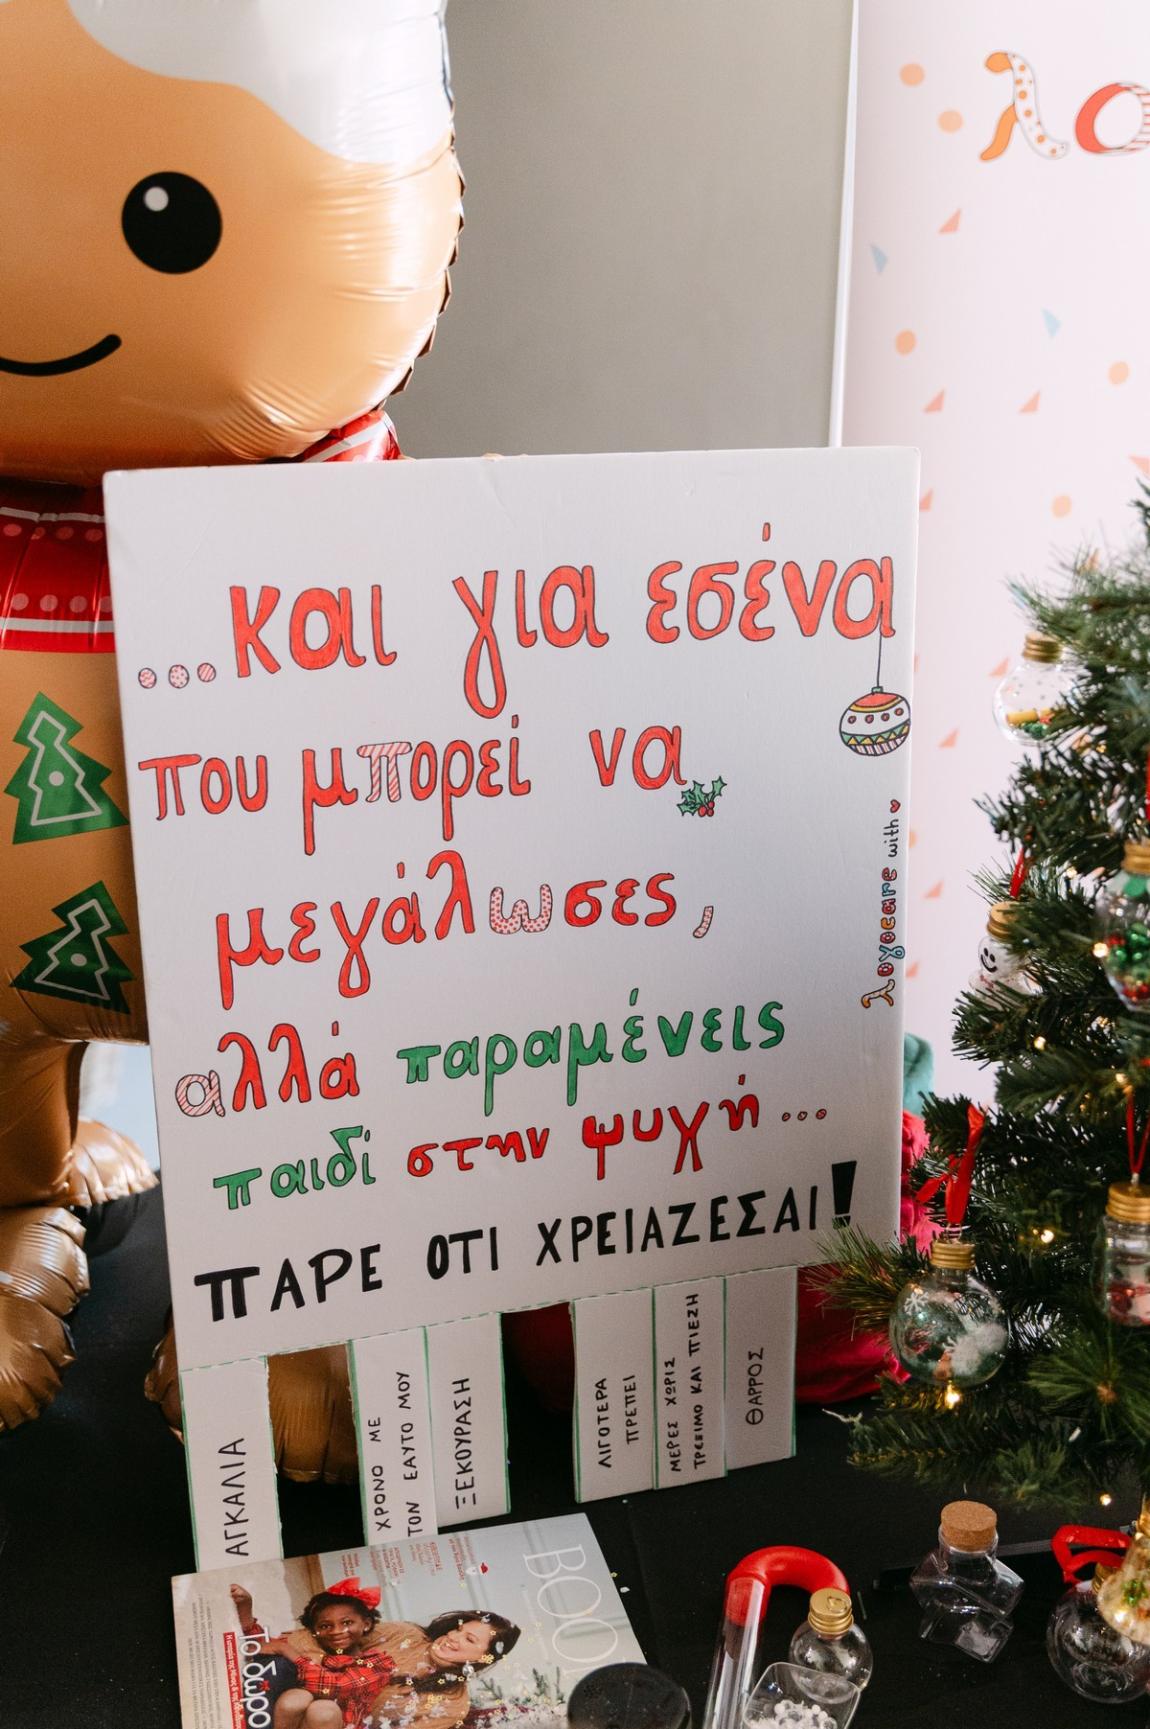 λο
...και για εσένα
που μπορεί να
μεγάλωσες,
αλλά παραμένεις
παιδί στην ψυχή...
ΠΑΡΕ ΟΤΙ ΧΡΕΙΑΖΕΣΑΙ!
λογοcare with
ΑΓΚΑΛΙΑ
ΧΡΟΝΟ ΜΕ
ΤΟΝ ΕΑΥΤΟ ΜΟΥ
ΞΕΚΟΥΡΑΣΗ
ΛΙΓΟΤΕΡΑ
ΠΡΕΠΕΙ
ΜΕΡΕΣ ΧΩΡΙΣ
ΤΡΕΞΙΜΟ ΚΑΙ ΠΙΕΖΗ
ΘΑΡΡΟΣ
BOO
Το δώρο